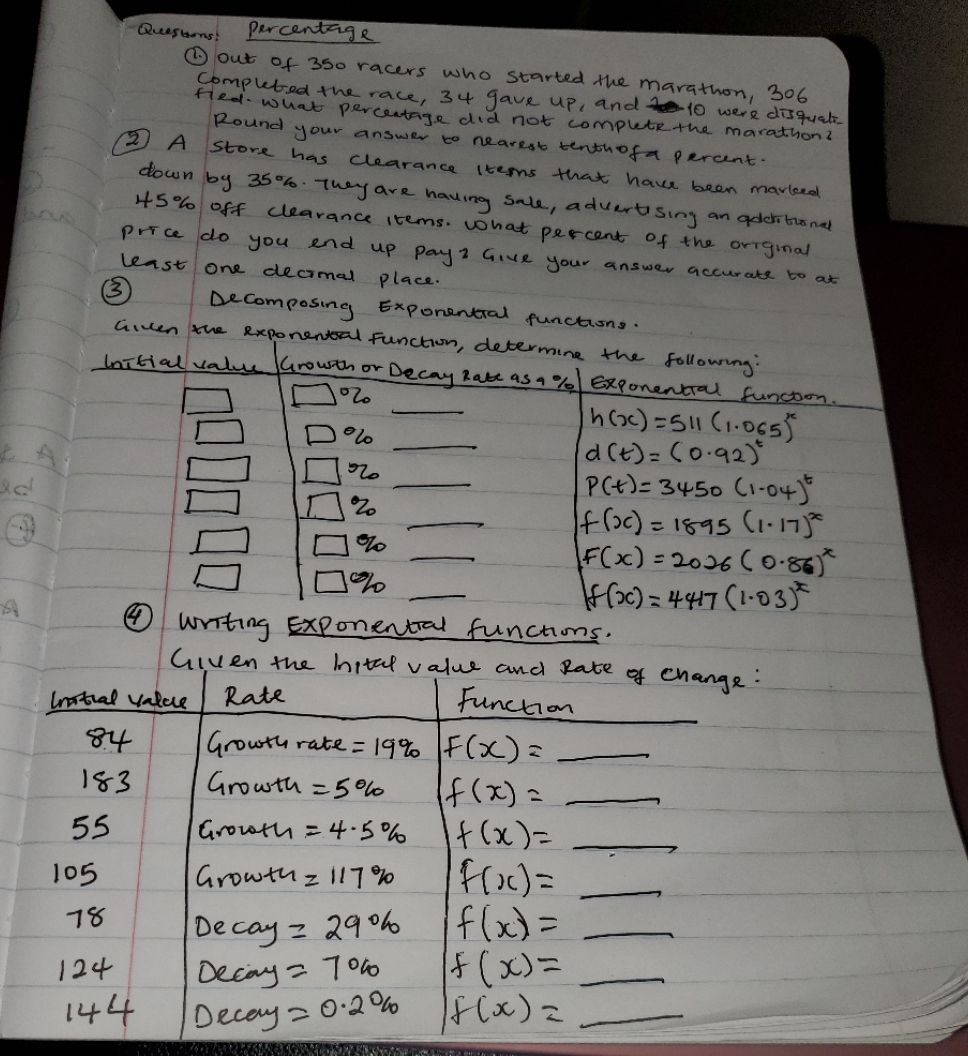 Questions: Percentage
① out of 350 racers who started the marathon, 306
completed the race, 34 gave up, and 10 were disquali
fied. what percentage did not complete the marathon?
Round your answer to nearest tenth of a percent.
② A store has clearance items that have been marked
down by 35%. They are having sale, advertising an additional
45% off clearance items. What percent of the original
price do you end up pay? Give your answer accurate to at
least one decimal place.
③ Decomposing Exponential functions.
Given the exponential function, determine the following:
Initial value Growth or Decay Rate as a % Exponential function.
% h(x)=511(1.065)^x
% d(t)=(0.92)^t
% P(t)=3450(1.04)^t
% f(x)=1895(1.17)^x
% F(x)=2026(0.86)^x
% f(x)=4417(1.03)^x
④ Writing Exponential functions.
Given the Inital value and Rate of change:
Initial value Rate Function
84 Growth rate = 19% F(x) =
183 Growth = 5% f(x) =
55 Growth = 4.5% f(x) =
105 Growth = 117% f(x) =
78 Decay = 29% f(x) =
124 Decay = 7% f(x) =
144 Decay = 0.2% f(x) =